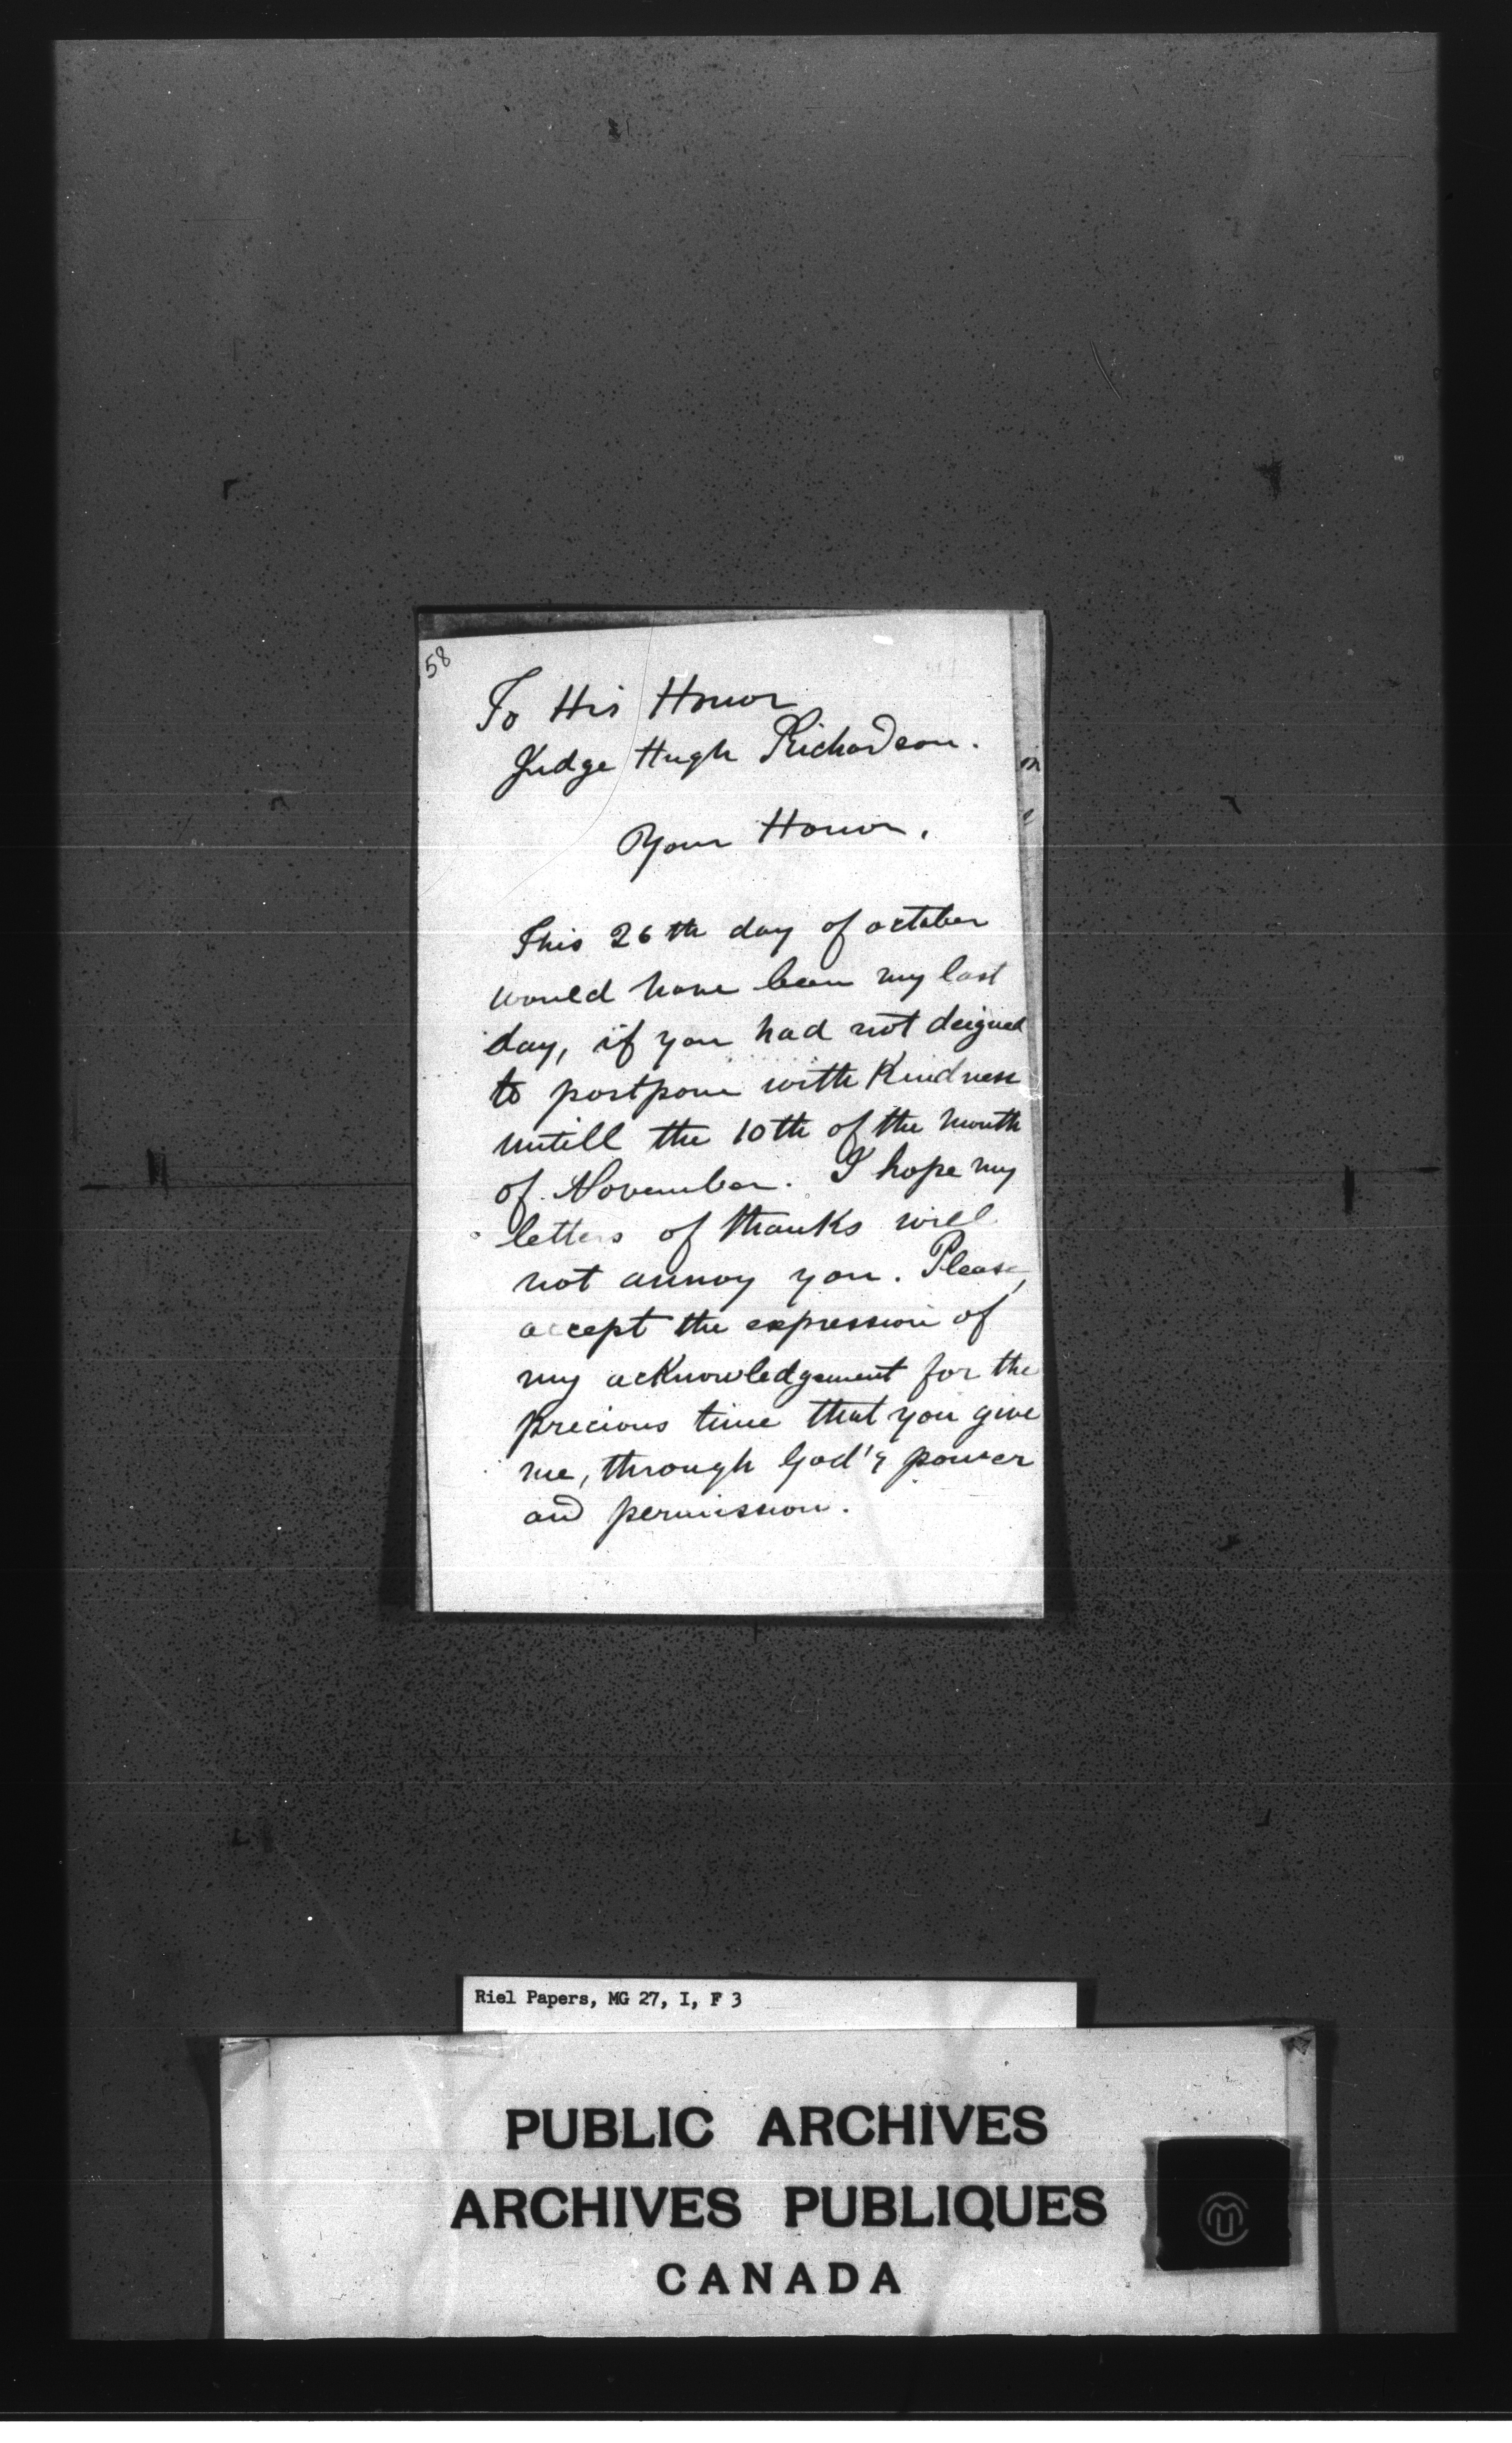 58
To His Honor
Judge Hugh Richardson.
Your Honor,
This 26th day of october
would have been my last
day, if you had not deigned
to postpone with Kindness
untill the 10th of the month
of November. I hope my
letters of thanks will
not annoy you. Please,
accept the expression of
my acKnowledgement for the
precious time that you give
me, through God's power
and permission.
Riel Papers, MG 27, I, F 3
PUBLIC ARCHIVES
ARCHIVES PUBLIQUES
CANADA